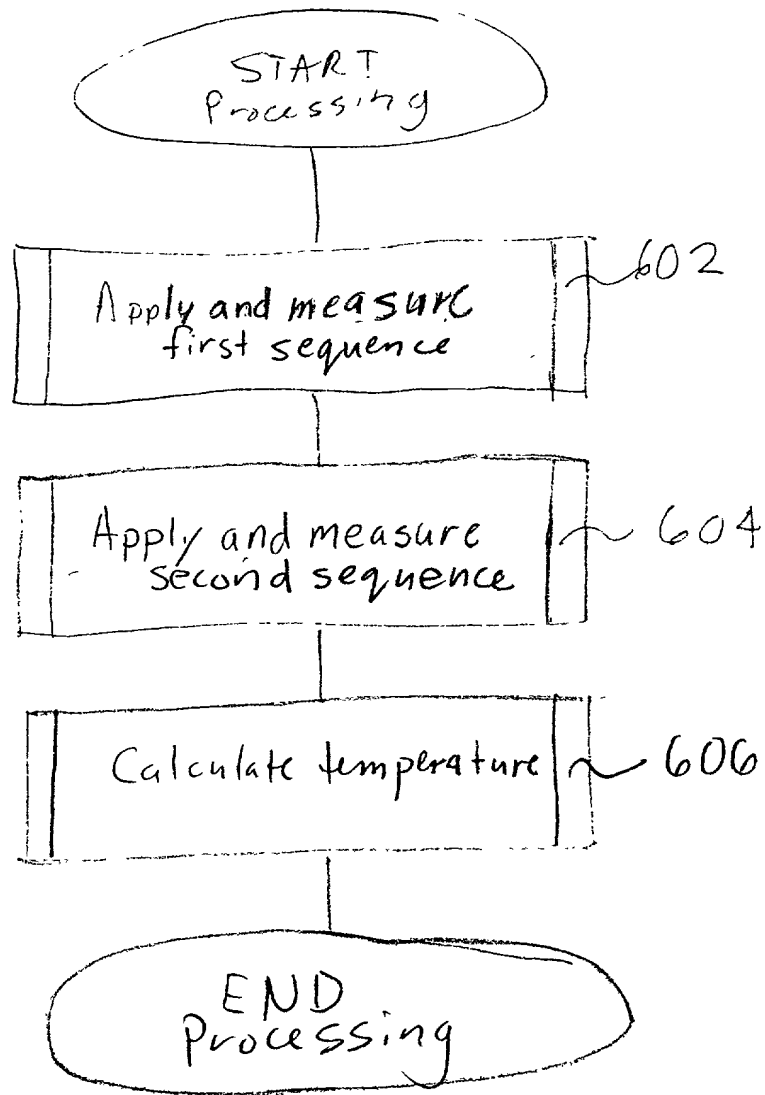 START
Processing
602
Apply and measure
first sequence
Apply and measure
second sequence
604
Calculate temperature
606
END
Processing